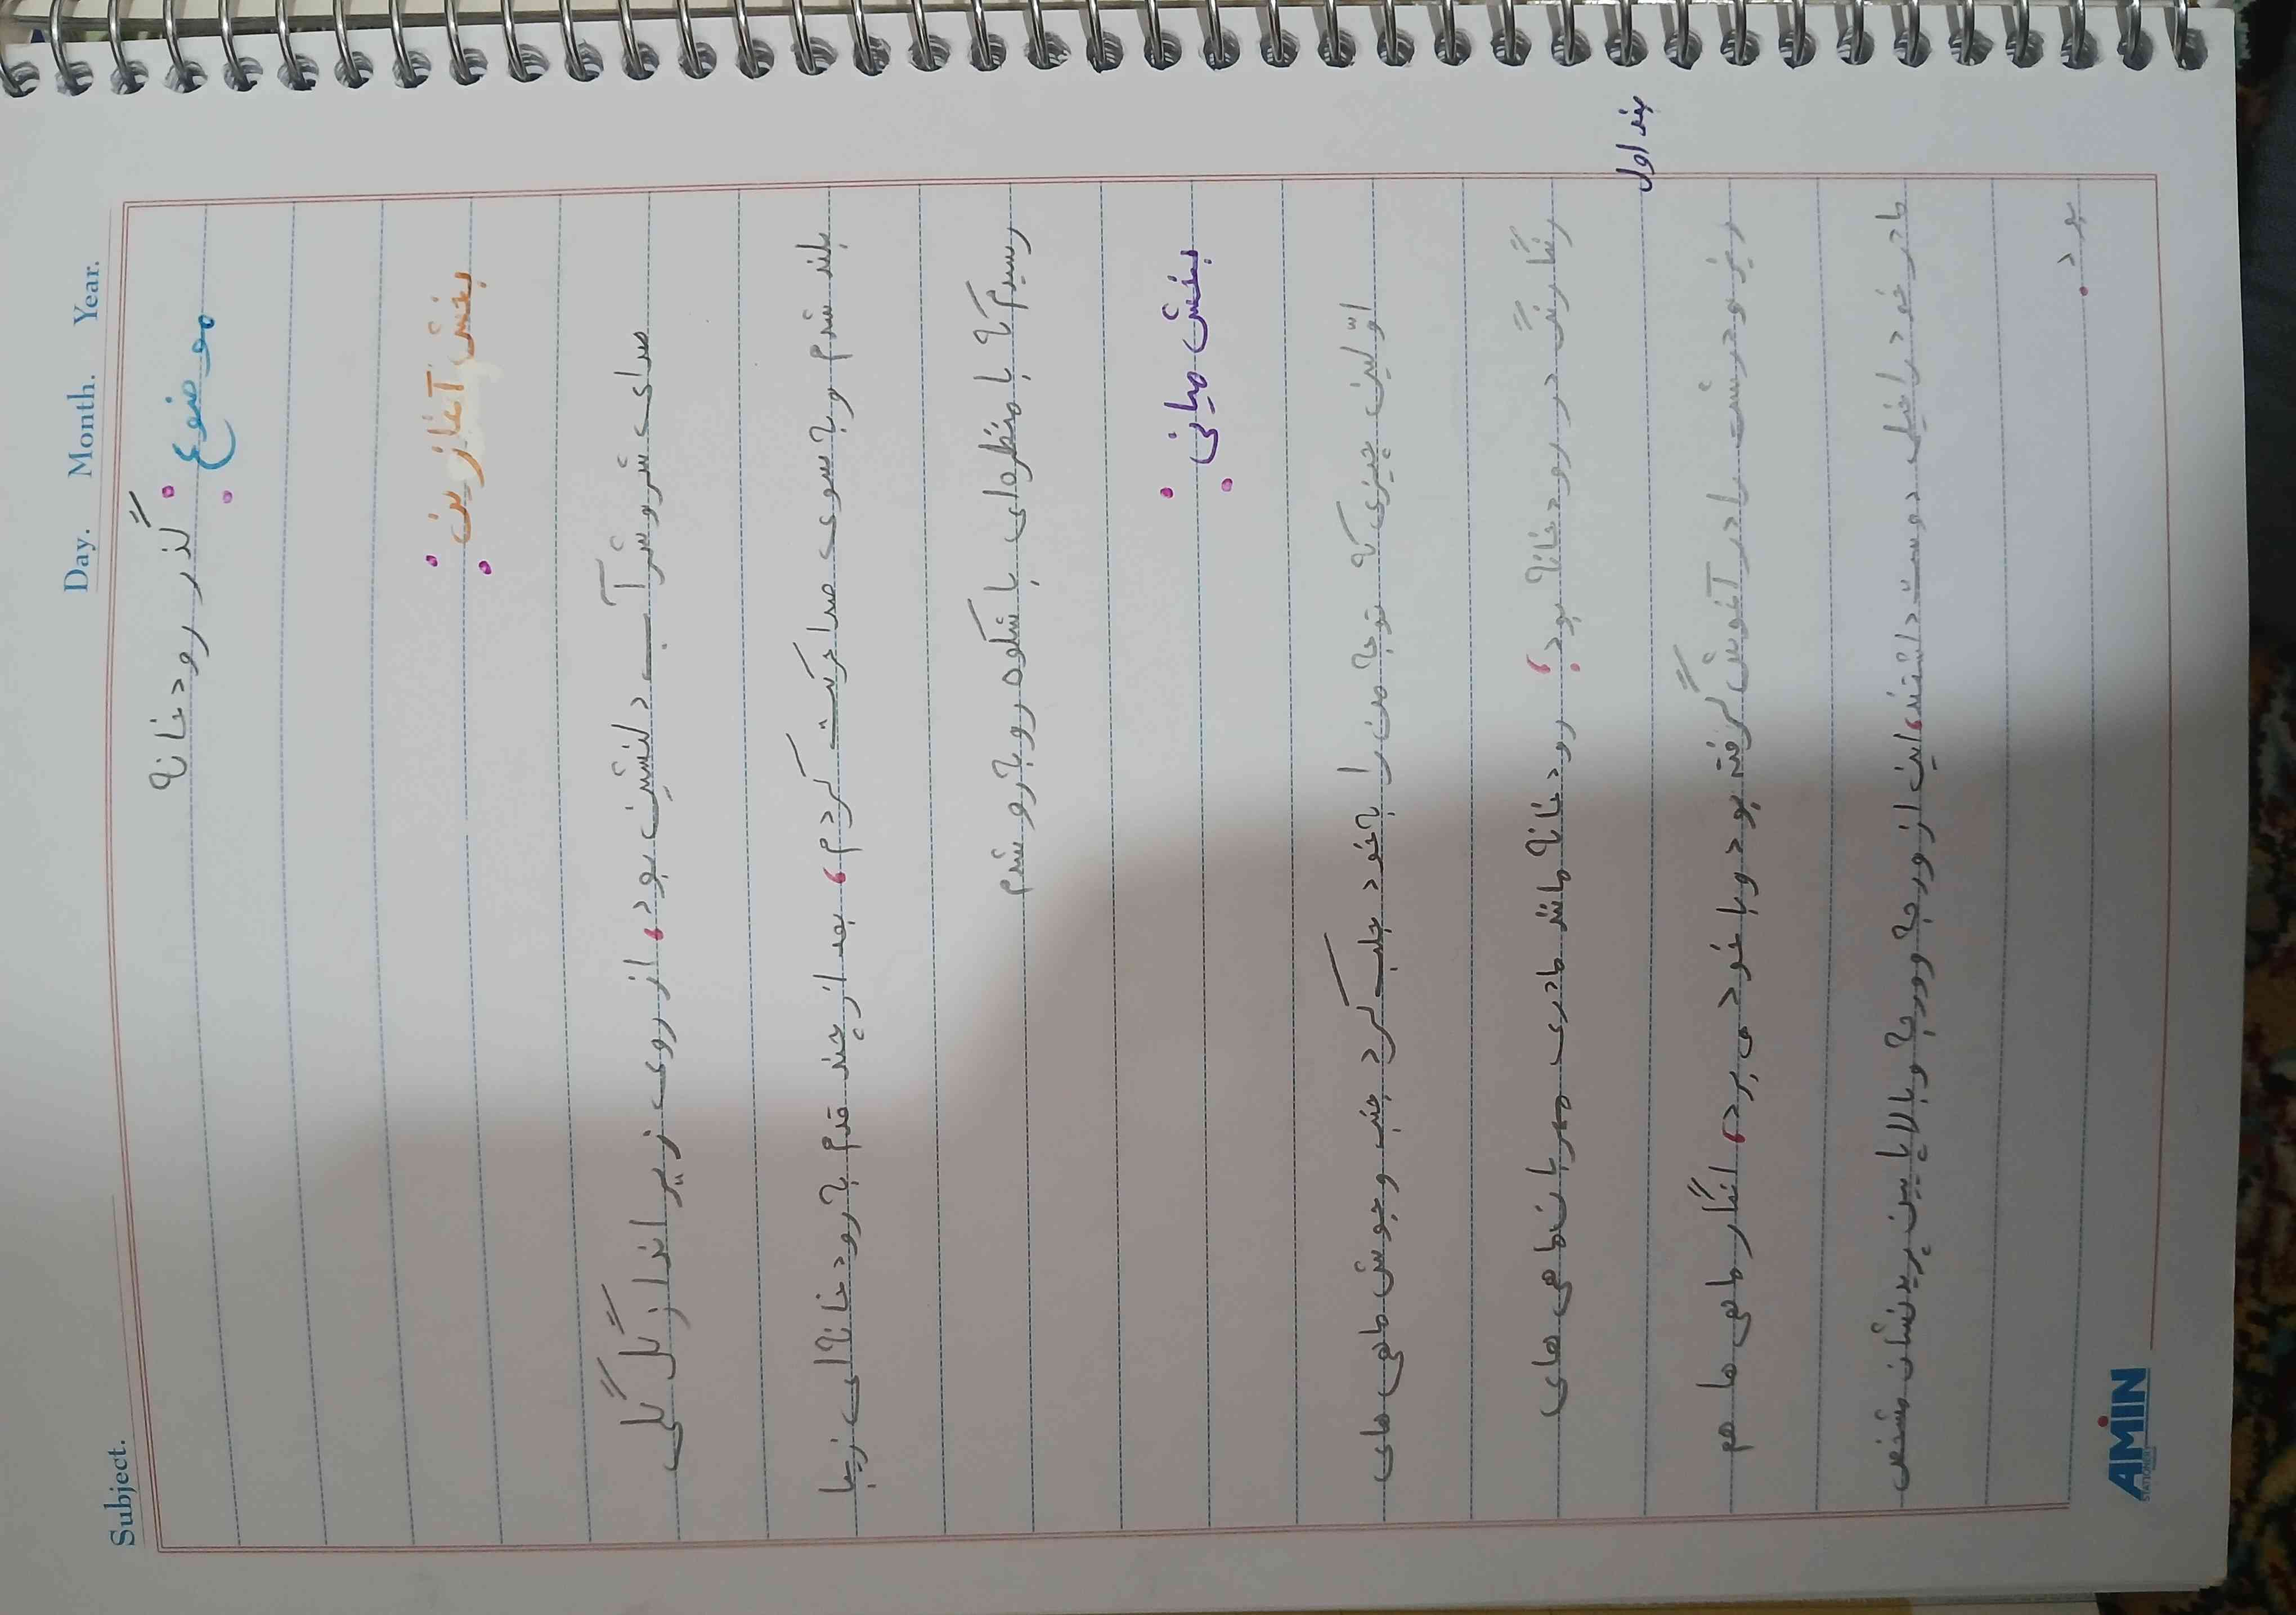 Subject.
Day. Month. Year.
موضوع: گذر رودخانه
بخش آغازین:
صدای شروشر آب دلنشین بود، از روی زیر انداز گل گلی
بلند شدم و به سوی صدا حرکت کردم، بعد از چند قدم به رودخانه‌ای زیبا
رسیدم که با منظره‌ای باشکوه رو به رو شدم
بخش میانی:
اوّلین چیزی که توجه من را به خود جلب کرد جنب و جوش ماهی های
رنگارنگ در رودخانه بود؛ رودخانه مانند مادری مهربان ماهی های
بند اول
ریز و درشت را در آغوش گرفته بود و با خود می برد، انگار ماهی ها هم
مادر خود را خیلی دوست داشتند، این از ورجه وورجه و بالا پایین پریدنشان مشخص
بود.
AMIN
STATIONERY